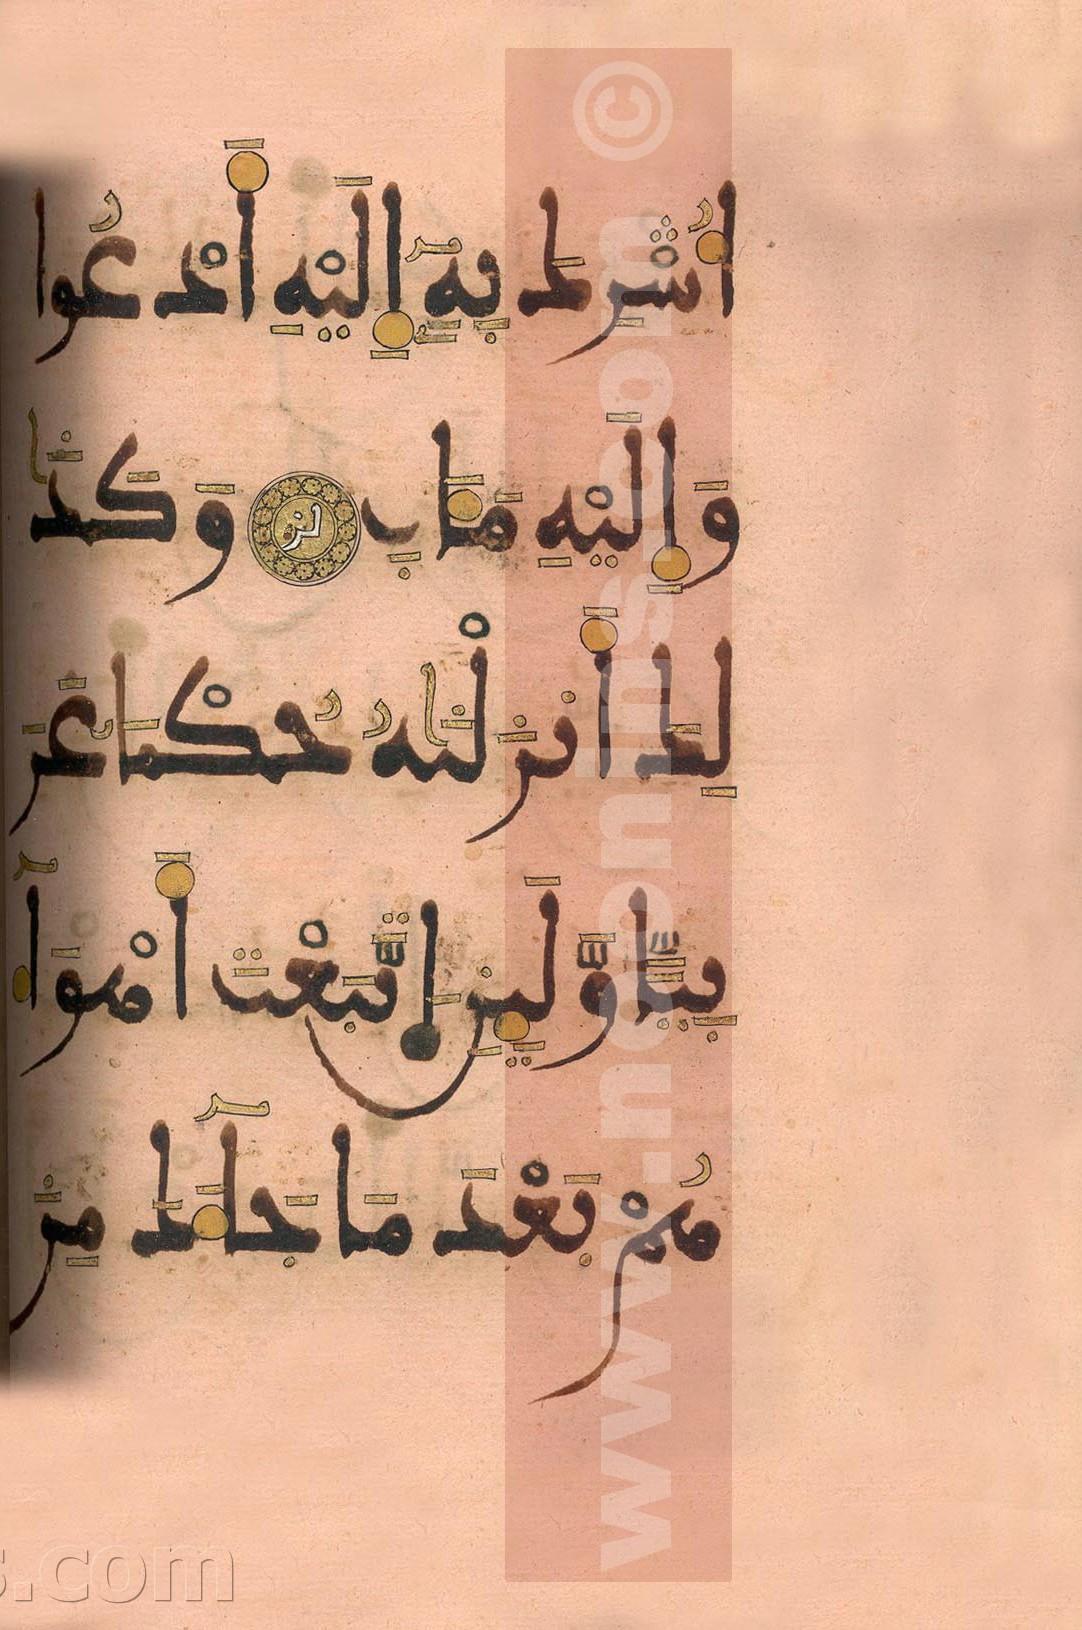 أُشْرِكَ بِهِ إِلَيْهِ أَدْعُوا
وَإِلَيْهِ مَـَٔابِ وَكَذَٰ
لِكَ أَنزَلْنَٰهُ حُكْمًا عَرَ
بِيًّا وَلَئِنِ اتَّبَعْتَ أَهْوَا
ءَهُمْ بَعْدَ مَا جَآءَكَ مِنَ
© www.noonins.com
s.com